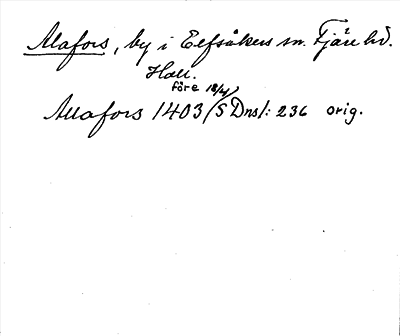 Alafors, by i Elfsåkers sn. Fjäre hd.
Hall.
före 18/4
Allafors 1403 (S Dns 1: 236 orig.